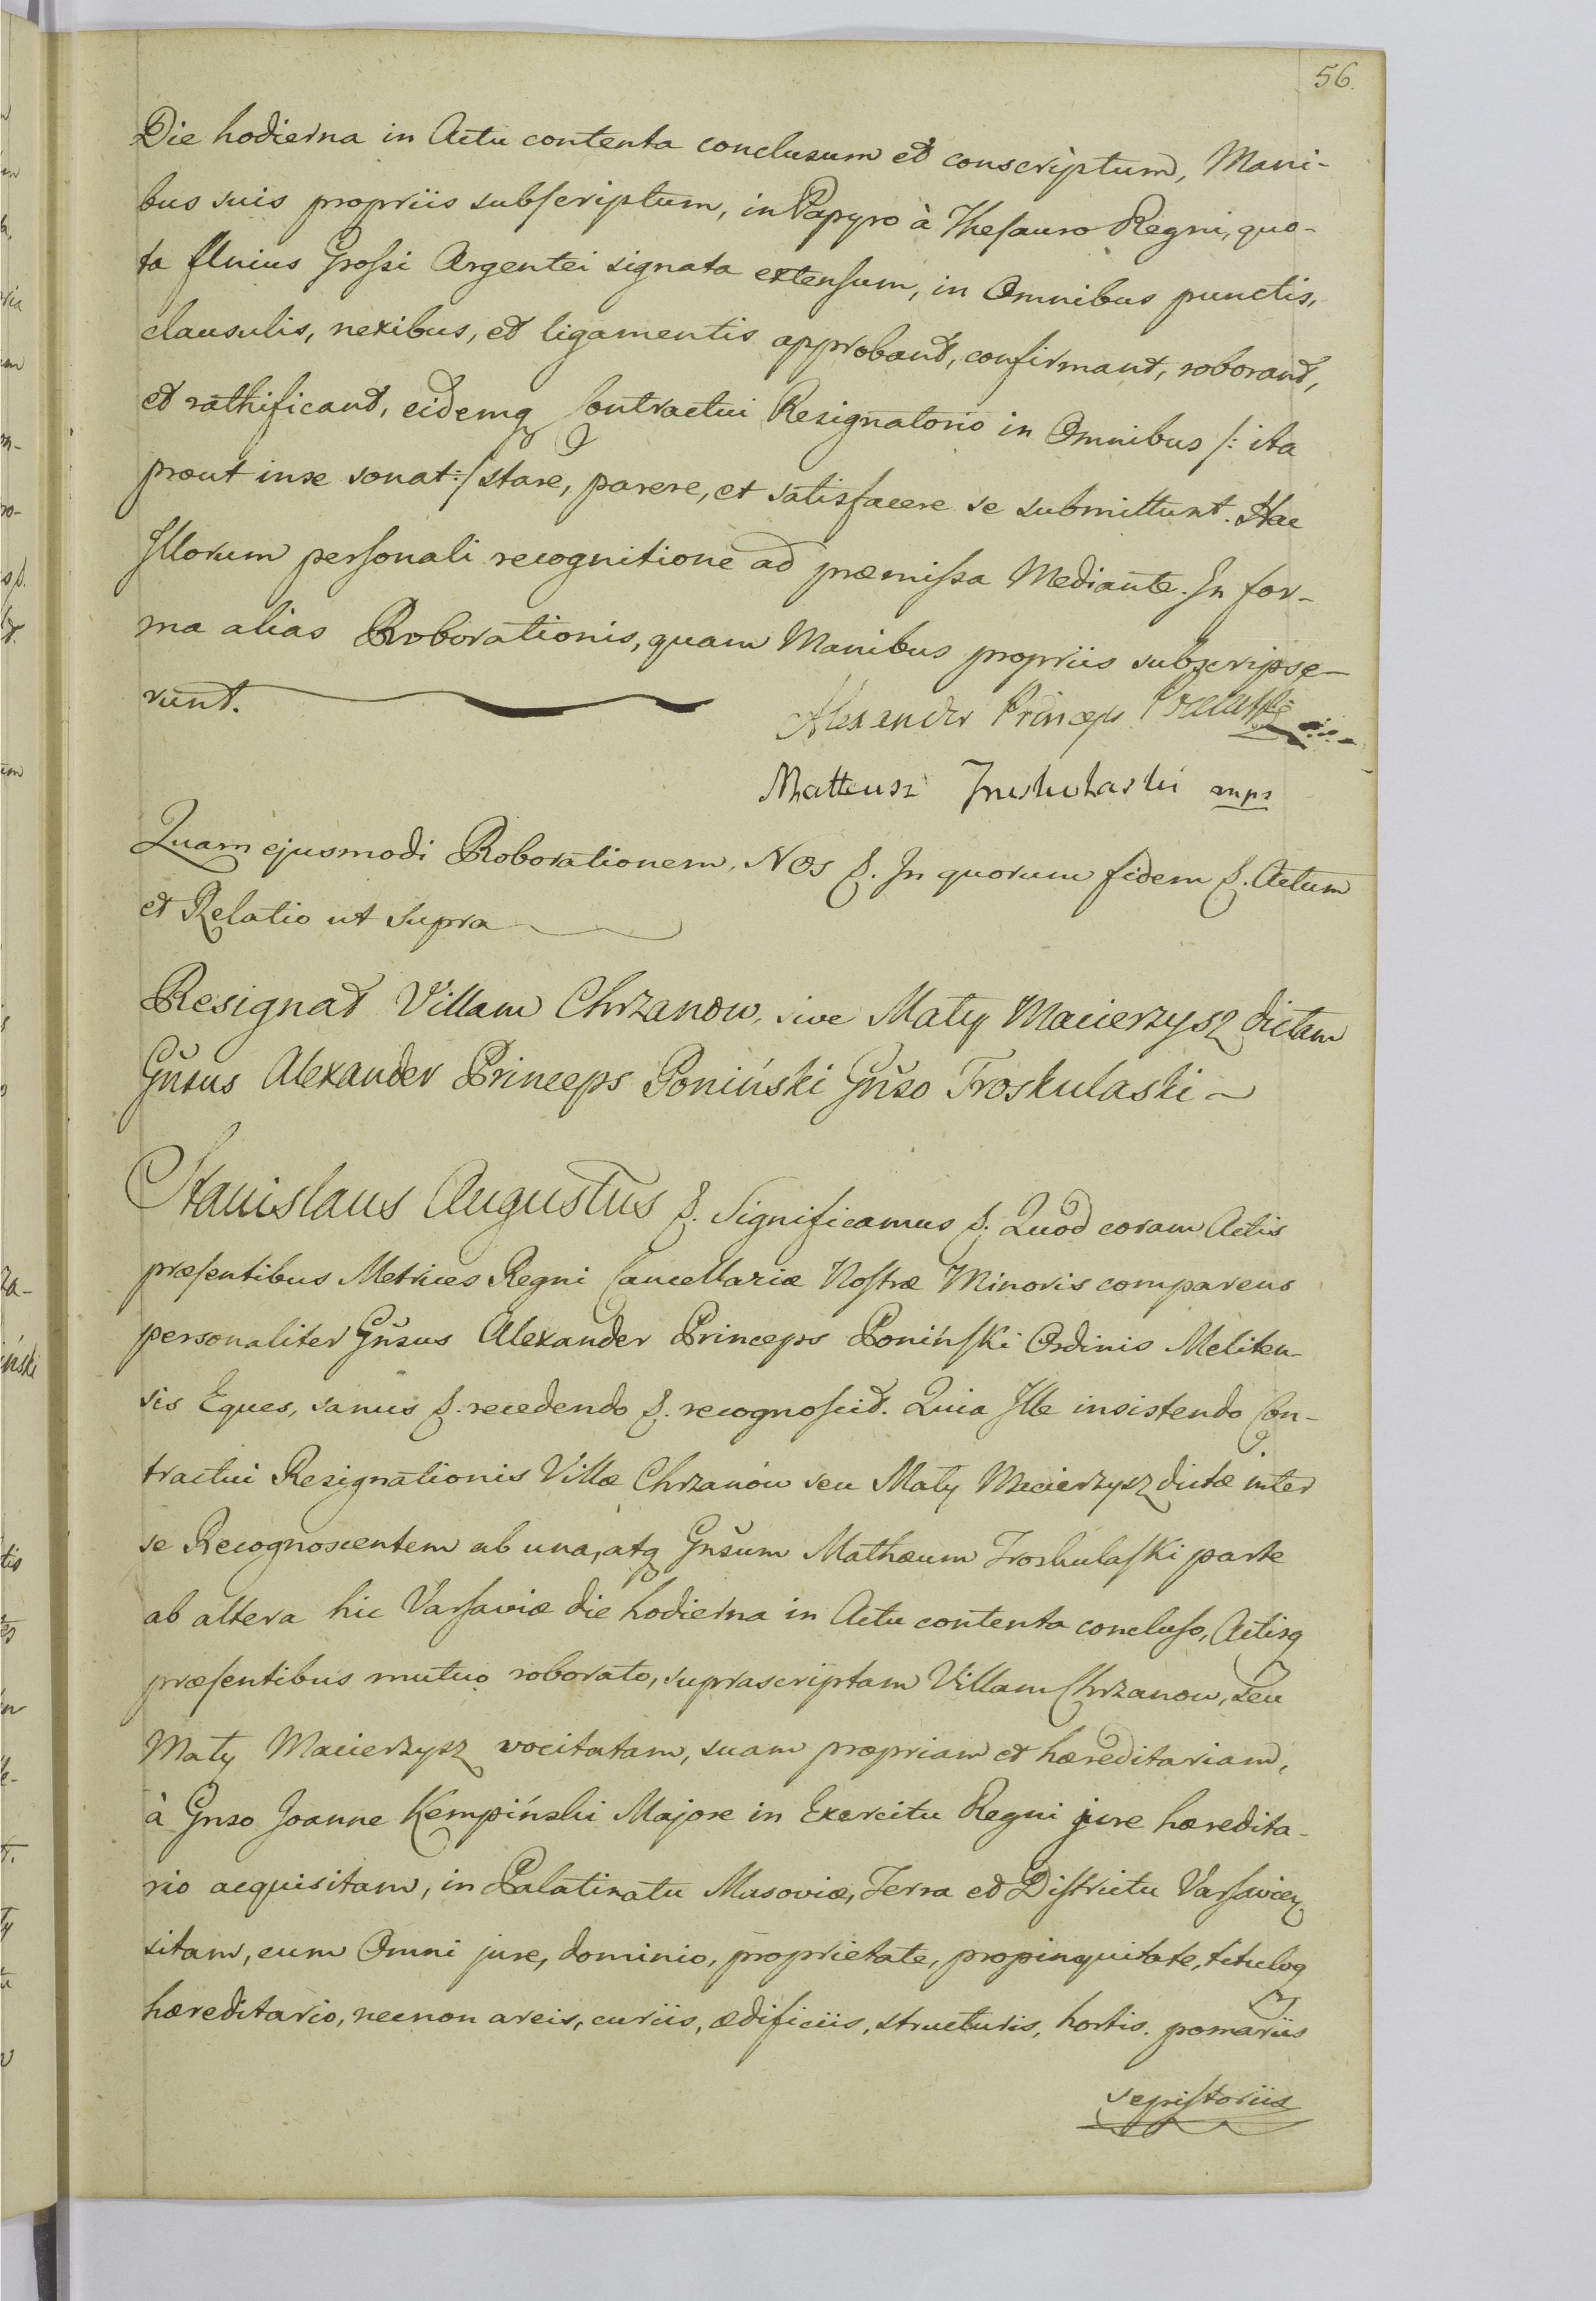 56.
Die hodierna in Actu contenta conclusum et conscriptum, Mani-
bus suis propriis subscriptum, in Papyro à Thesauro Regni, quo-
ta Unius Grossi Argentei signata extensum, in Omnibus punctis,
clausulis, nexibus, et ligamentis approbant, confirmant, roborant,
et rathificant, eidemq Contractui Resignatorio in Omnibus /: ita
prout in se sonat :/ stare, parere, et satisfacere se submittunt. Hac
Illorum personali recognitione ad præmissa Mediante. In for-
ma alias Roborationis, quam Manibus propriis subscripse-
runt.
Alexander Princeps
Matteusz mp
Quam ejusmodi Roborationem, Nos &. In quorum fidem &. Actum
et Relatio ut supra
Resignat Villam Chrzanow, sive Mały Macierzysz dictam
Gnsus Alexander Princeps Poniński Gnso Troskulaski
Stanislaus Augustus &. Significamus &. Quod coram Actis
præsentibus Metrices Regni Cancellariæ Nostræ Minoris comparens
personaliter Gnsus Alexander Princeps Poniński Ordinis Meliten-
sis Eques, sanus &. recedendo &. recognoscit. Quia Ille insistendo Con-
tractui Resignationis Villæ Chrzanów seu Mały Macierzysz dictæ inter
se Recognoscentem ab una, atq Gnsum Mathæum Troskulaski parte
ab altera hic Varsaviæ die hodierna in Actu contenta concluso, Actisq
præsentibus mutuo roborato, suprascriptam Villam Chrzanow, seu
Mały Macierzysz vocitatam, suam propriam et hæreditariam,
à Gnso Joanne Kempiński Majore in Exercitu Regni jure hæredita-
rio acquisitam, in Palatinatu Masoviæ, Terra et Districtu Varsavien
sitam, cum Omni jure, dominio, proprietate, propinquitate, tituloq
hæreditario, necnon areis, curiis, ædificiis, structuris, hortis, pomariis
sepistoriis